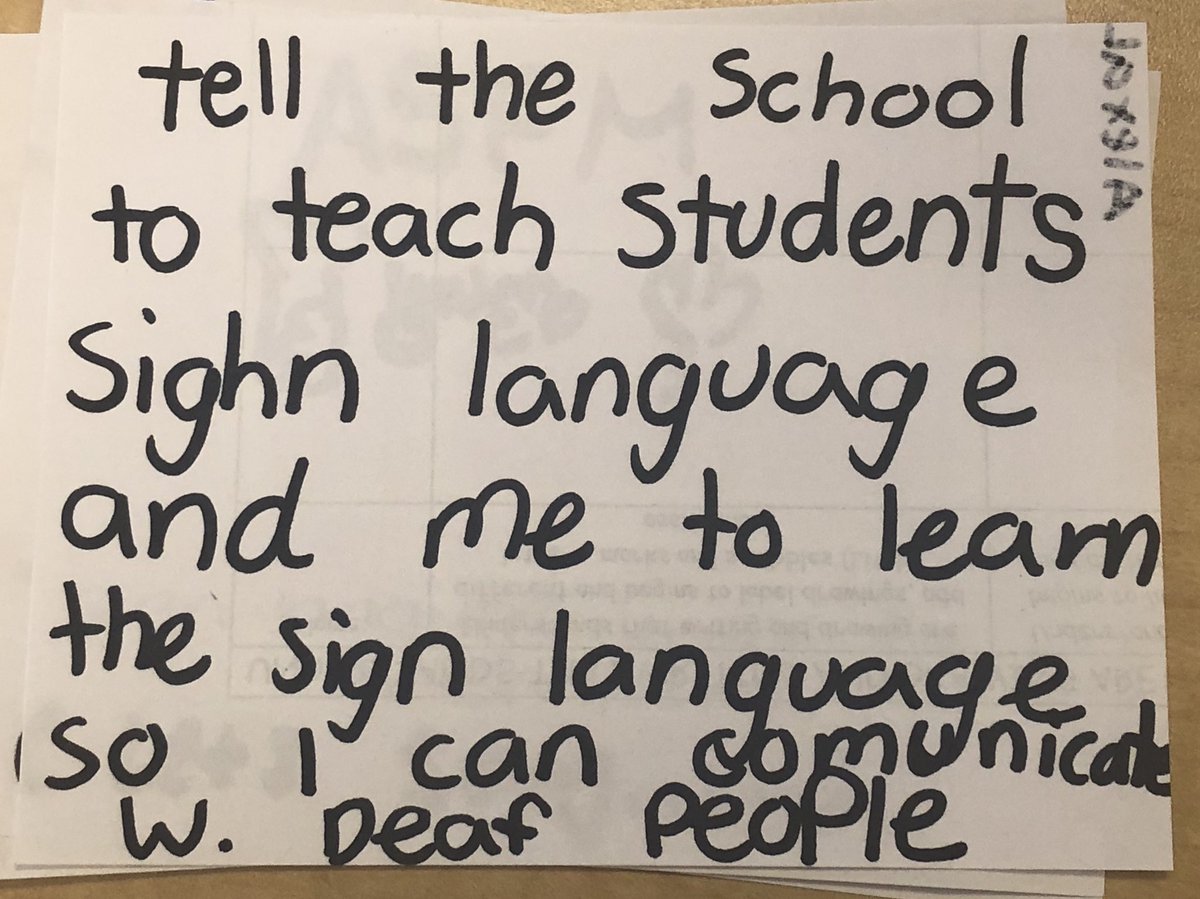 tell the School
to teach Students
Sighn language
and me to learn
the sign language
so I can comunicate
W. Deaf PeoPle